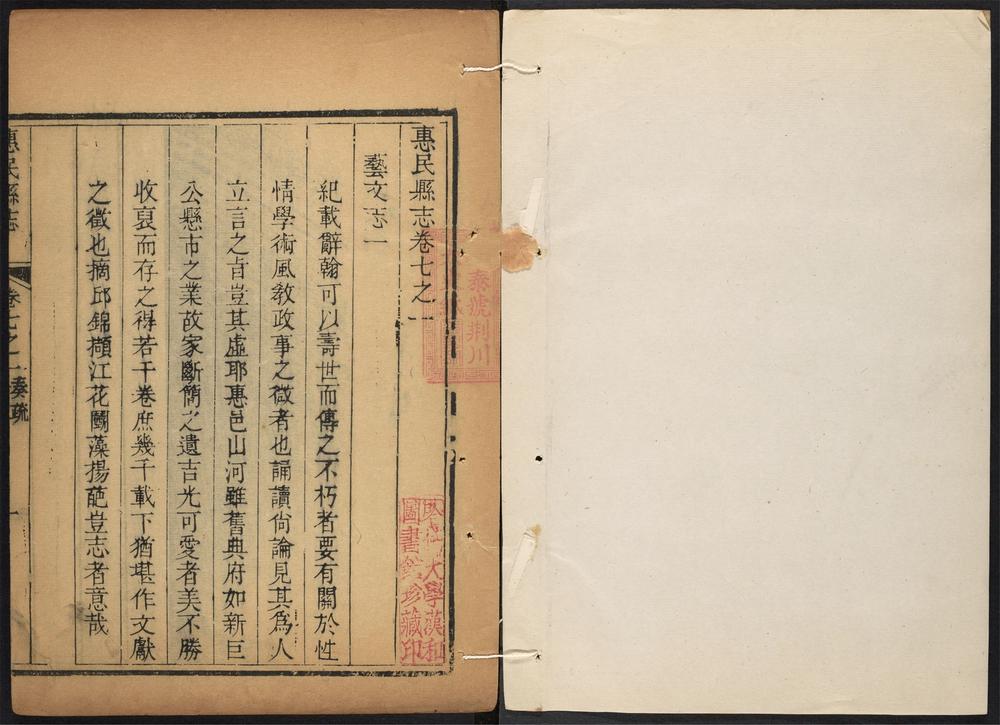 惠民縣志卷七之一
藝文志一
紀載辭翰可以壽世而傳之不朽者要有關於性
情學術風教政事之微者也誦讀尙論見其爲人
立言之旨豈其虛耶惠邑山河雖舊典府如新巨
公懸市之業故家斷簡之遺吉光可愛者美不勝
收裒而存之得若干卷庶幾千載下猶堪作文獻
之徵也摘邱錦擷江花鬭藻揚葩豈志者意哉
惠民縣志
卷七之一奏疏
一
泰號荆川
大學漢和
圖書館珍藏印